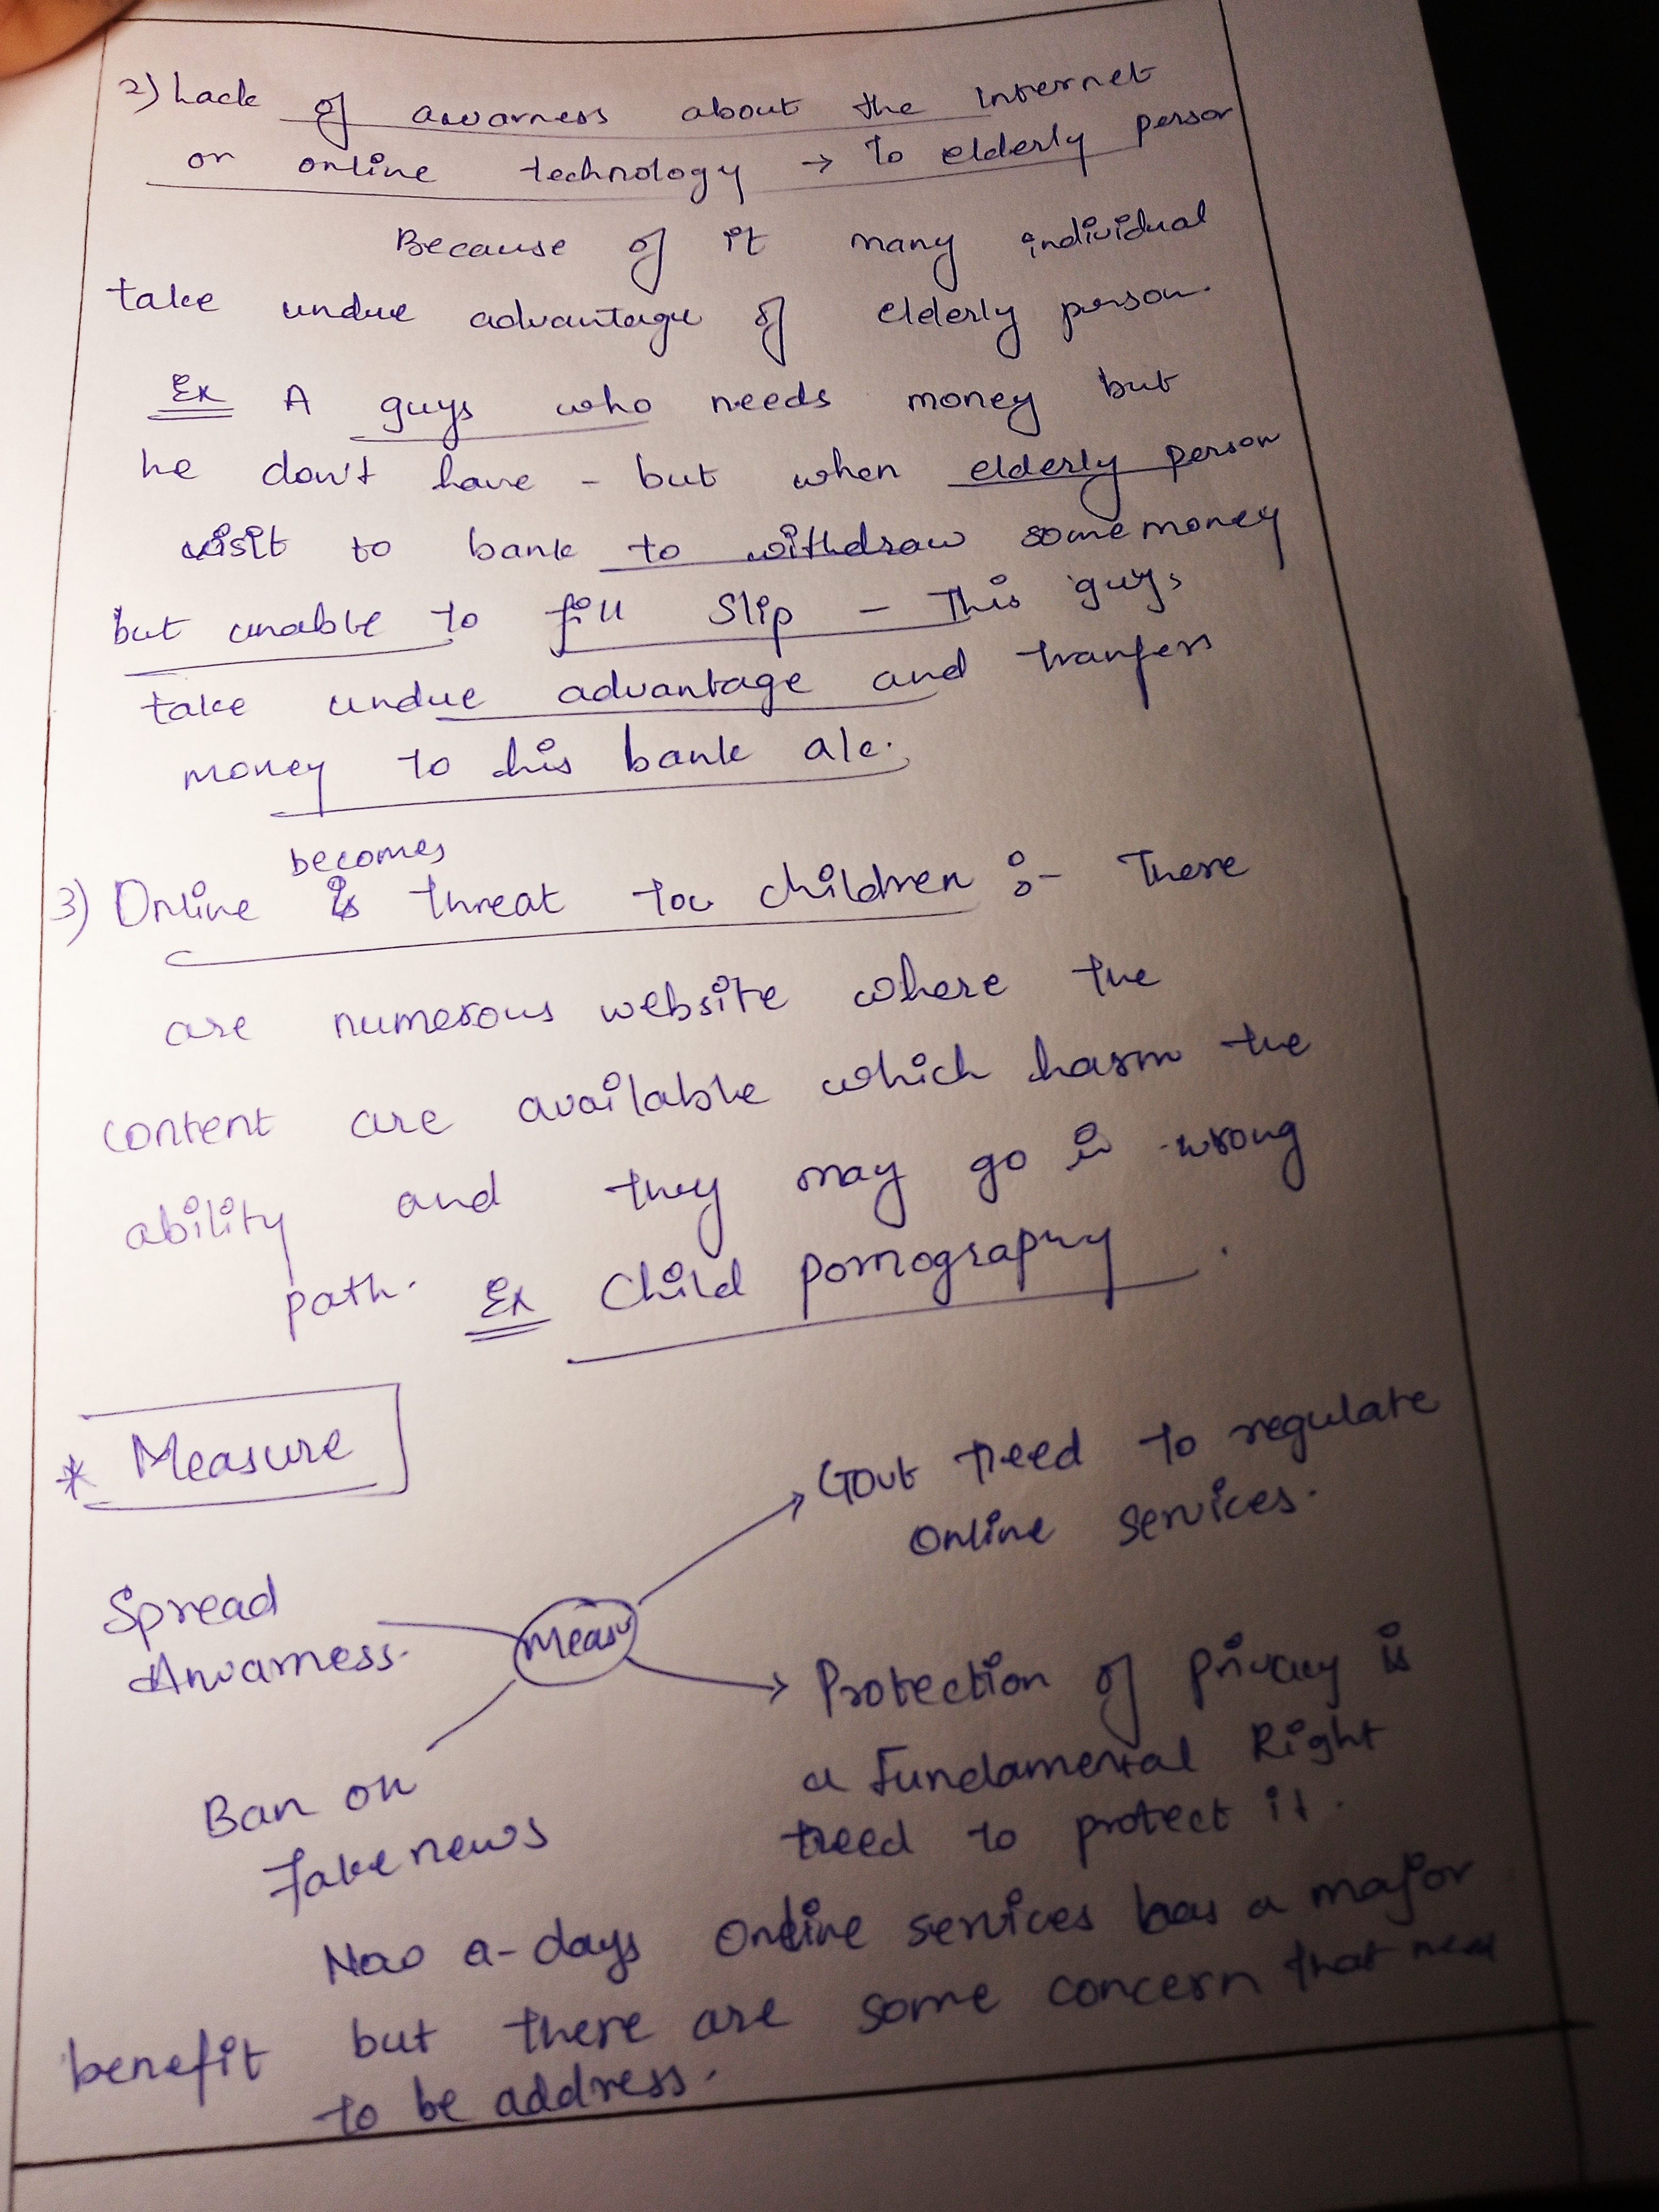 2) Lack of awarness about the internet
or online technology → To elderly person
Because of it many individual
take undue advantage of elderly person.
Ex A guys who needs money but
he don't have - but when elderly person
visit to bank to withdraw some money
but unable to fill Slip - This guys
take undue advantage and tranfers
money to his bank a/c.
becomes
3) Online is threat to children :- There
are numerous website where the
content are available which harm the
ability and they may go in wrong
path. Ex Child pornography.
* Measure
Govt need to regulate
online services.
Spread
Awarness.
Measu
Protection of privacy is
a Fundamental Right
need to protect it.
Ban on
Fake news
Now a-days Online services has a major
benefit but there are some concern that need
to be address.